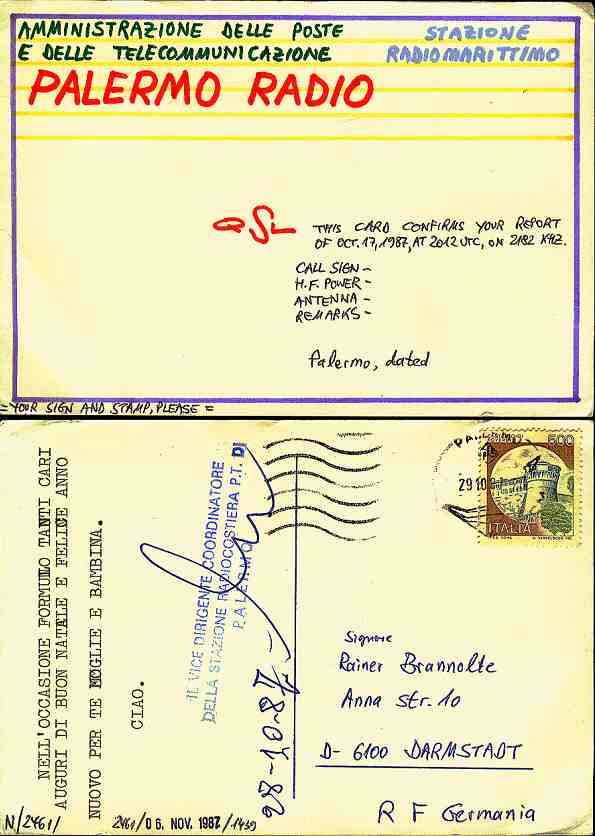 AMMINISTRAZIONE DELLE POSTE
E DELLE TELECOMMUNICAZIONE
STAZIONE
RADIOMARITTIMO
PALERMO RADIO
QSL
THIS CARD CONFIRMS YOUR REPORT
OF OCT. 17, 1987, AT 2012 UTC, ON 2182 KHZ.
CALL SIGN -
H.F. POWER -
ANTENNA -
REMARKS -
Palermo, dated
= YOUR SIGN AND STAMP, PLEASE =
NELL'OCCASIONE FORMULO TANTI CARI
AUGURI DI BUON NATALE E FELICE ANNO
NUOVO PER TE MOGLIE E BAMBINA.
CIAO.
IL VICE DIRIGENTE COORDINATORE
DELLA STAZIONE RADIOCOSTIERA P.T. DI
PALERMO
28-10-87
29 10 8
500
ITALIA
Signore
Rainer Brannolte
Anna str. 10
D- 6100 DARMSTADT
R F Germania
N/2461/
2461/06. NOV. 1987/1439